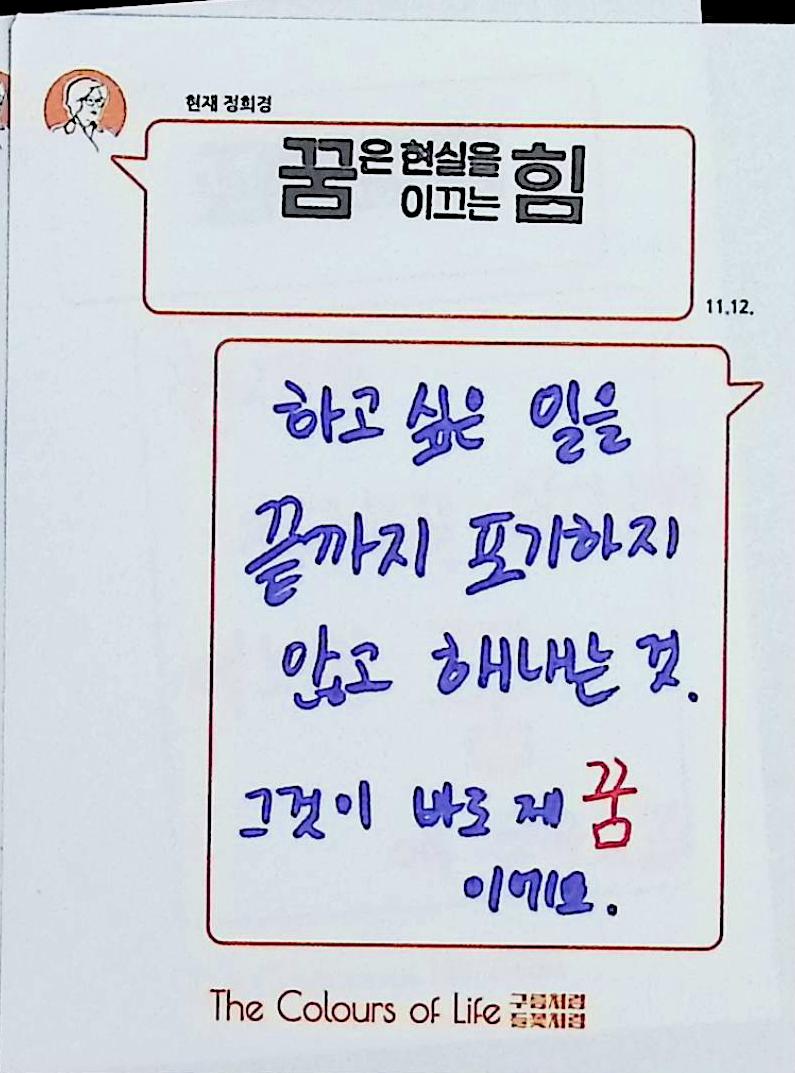 현재 정희경
꿈은 현실을
이끄는 힘
11.12.
하고 싶은 일을
끝까지 포기하지
않고 해내는 것.
그것이 바로 제 꿈
이에요.
The Colours of Life 구름처럼
들꽃처럼